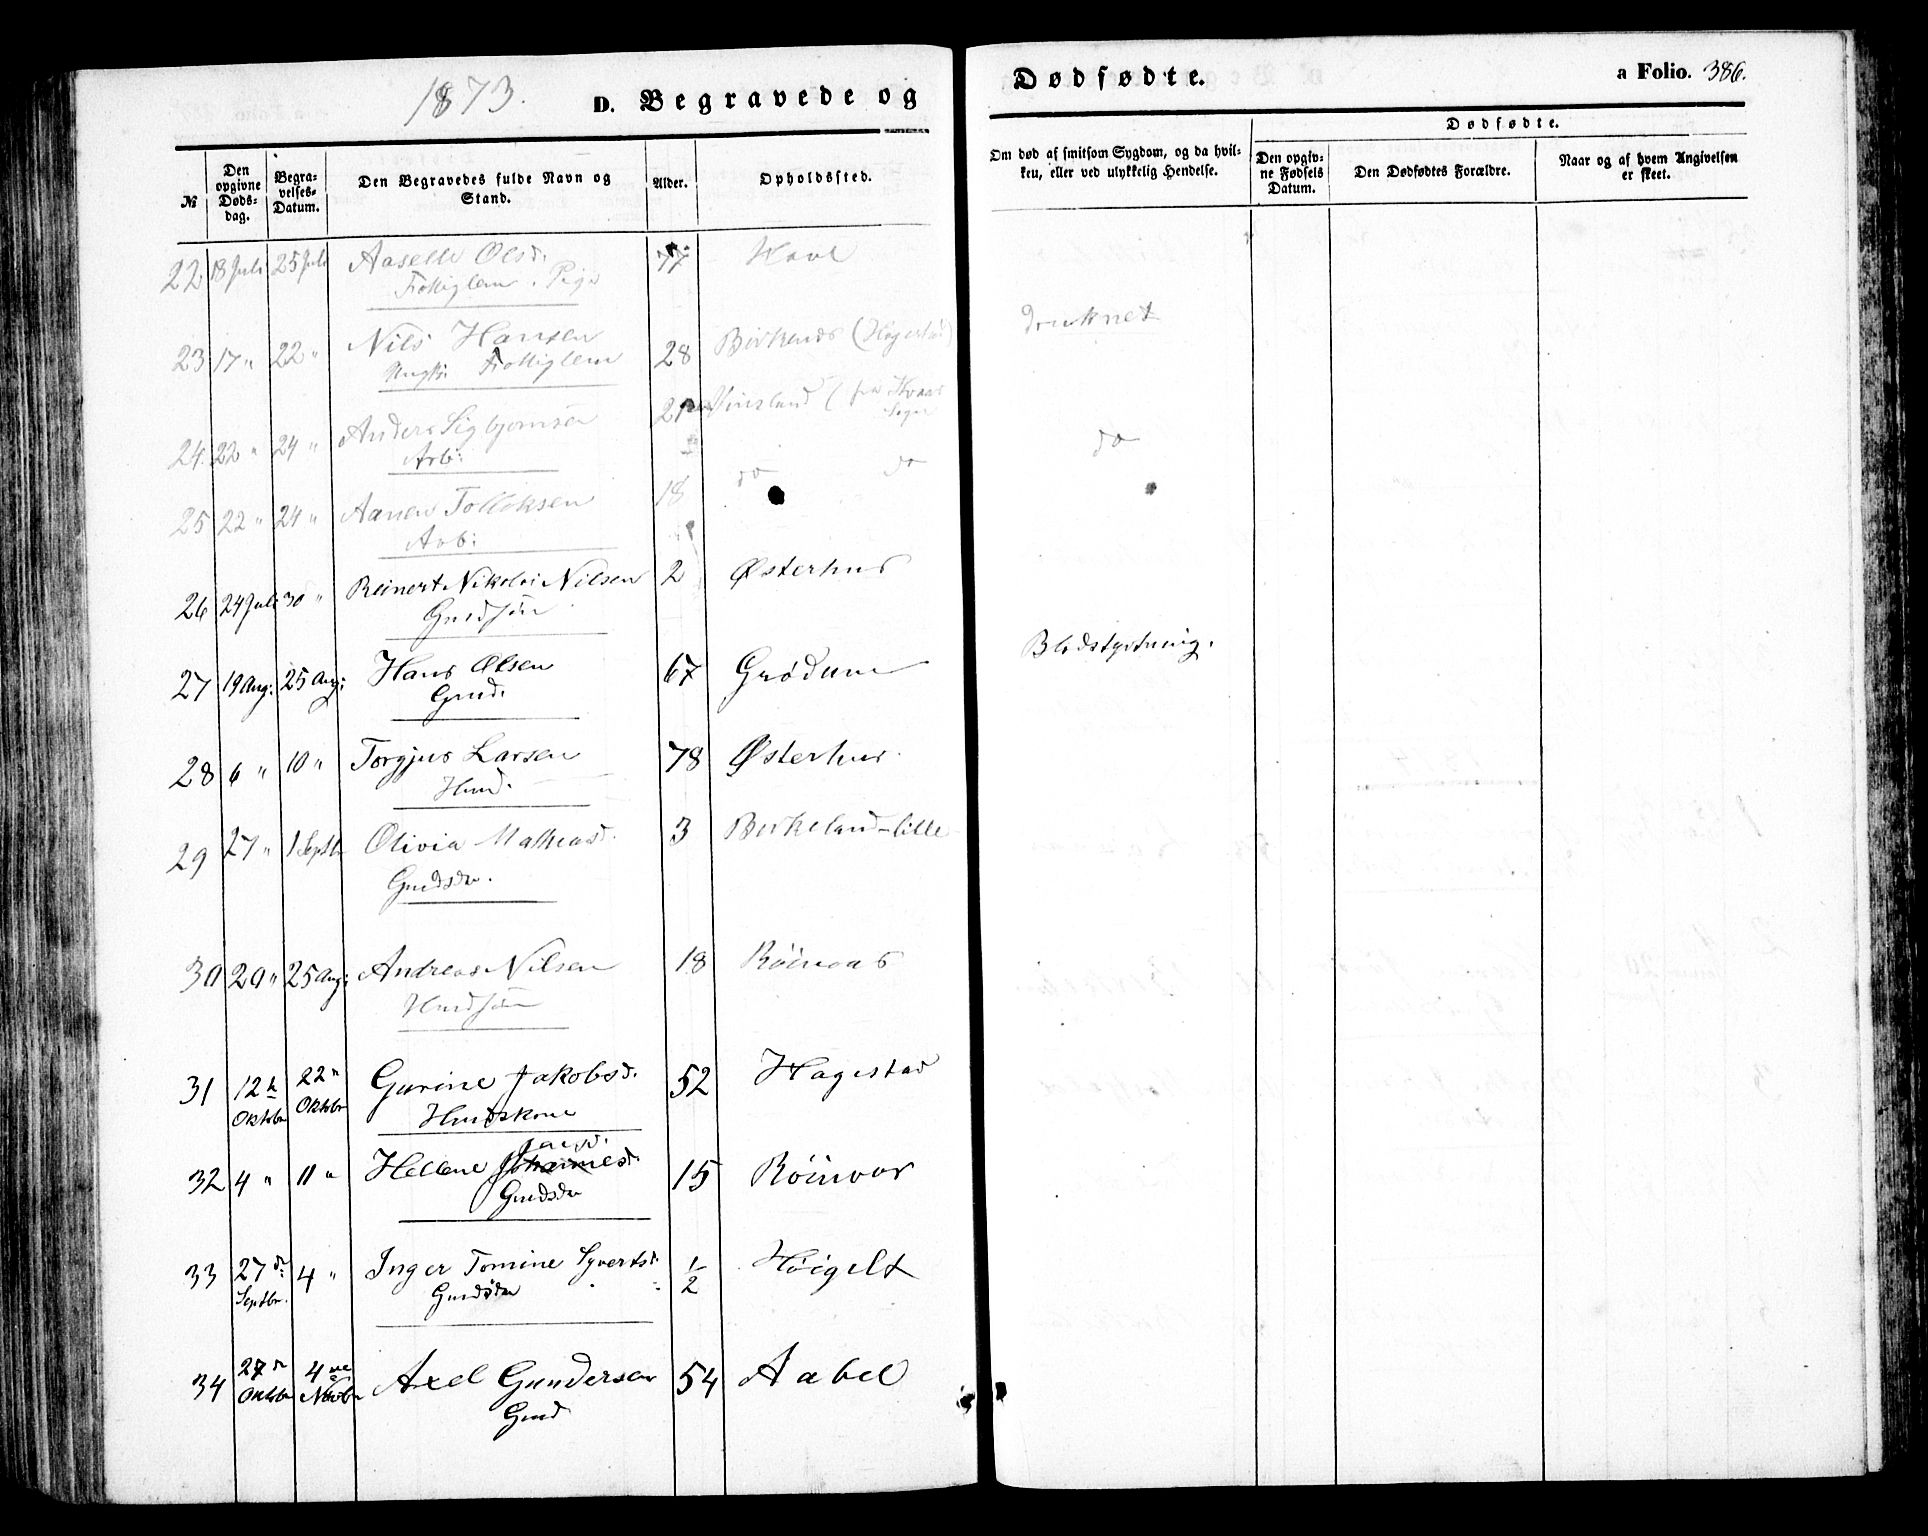 1873.
D. Begravede og
Dødfødte.
a Folio. 386.
№
Den opgivne Døds-dag.
Begra-velses-Datum.
Den Begravedes fulde Navn og Stand.
Alder.
Opholdssted.
Om død af smitsom Sygdom, og da hvil-ken, eller ved ulykkelig Hendelse.
Dødfødte.
Den opgiv-ne Fødsels Datum.
Den Dødfødtes Forældre.
Naar og af hvem Angivelsen er skeet.
22 18 Juli 25 Juli Aaselle Olsd. 77 Havl
Fattiglem. Pige
23 17 " 22 " Nils Hansen 28 Birkenes (Hagestad) druknet
Ungk. Fattiglem
24 22 " 24 " Anders Sigbjørnsen 21 Vinsland (fra Hvaas Sogn do
Arb:
25 22 " 24 " Aanen Tolleksen 18 do do
Arb:
26 24 Juli 30 " Reinert Nikolai Nilsen 2 Østerhus
Gmdsøn
27 19 Aug: 25 Aug: Hans Olsen 67 Grødum Blodstyrtning.
Gmd.
28 6 " 10 " Torgjus Larsen 78 Østerhus
Hmd.
29 27 " 1 Septbr Olivia Mathiasd. 3 Birkeland-lille
Gmdsdr.
30 20 " 25 Aug: Andreas Nilsen 18 Röinaas
Hmdsøn
31 12te Oktobr 22" Oktobr Gurine Jakobsd. 52 Hagestad
Hmdskone
32 4 " 11 " Hellene Johannesd. 15 Röinvas
Gmdsdr
33 27d: Septbr. 4 " Inger Tomine Syvertsd: 1/2 Höigelt
Gmdsdr
34 27d Oktobr 4de Novbr Axel Gundersen 54 Aabel
Gmd